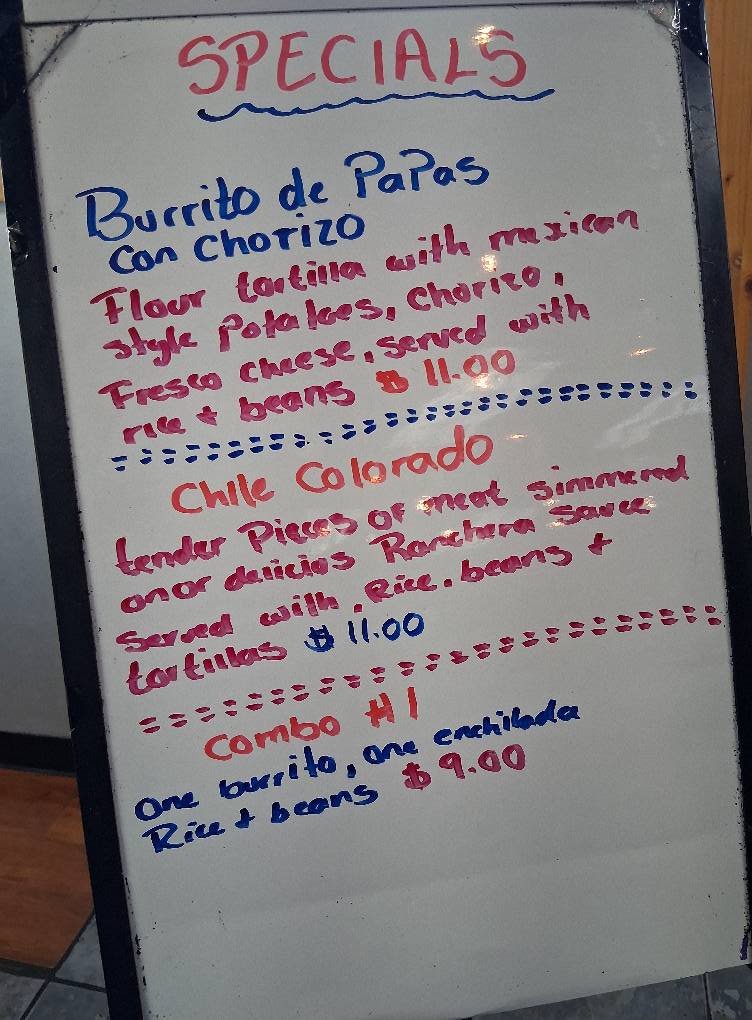 SPECIALS
Burrito de PaPas
con CHORIZO
Flour tortilla with mexican
style Potatoes, Chorizo,
Fresco cheese, served with
rice + beans $ 11.00
Chile Colorado
tender Pieces of meat simmered
on or delicios Ranchera sauce
Served with, Rice, beans +
tortillas $ 11.00
Combo #1
One burrito, one enchilada
Rice + beans $ 9.00